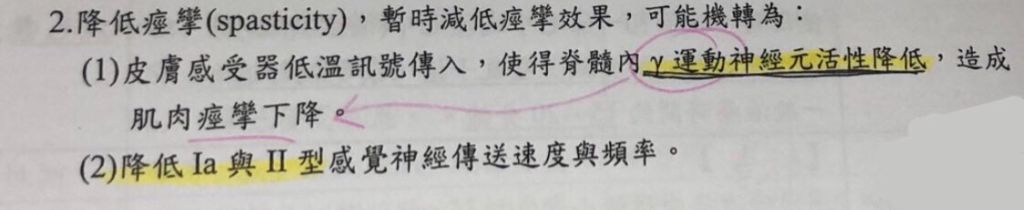 2.降低痙攣(spasticity)，暫時減低痙攣效果，可能機轉為：
(1)皮膚感受器低溫訊號傳入，使得脊髓內γ運動神經元活性降低，造成
肌肉痙攣下降。
(2)降低 Ia 與 II 型感覺神經傳送速度與頻率。